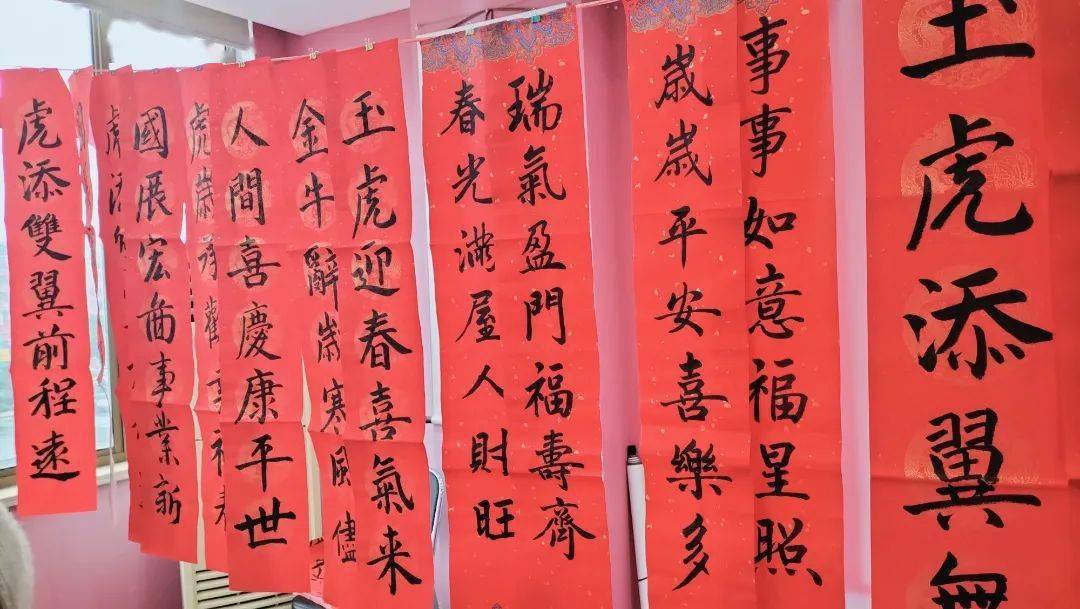 玉虎添翼無
事事如意福星照
歲歲平安喜樂多
瑞氣盈門福壽齊
春光滿屋人財旺
玉虎迎春喜氣来
金牛辭歲寒風儘
人間喜慶康平世
虎歲
國展宏啚事業新
虎添
虎添雙翼前程遠